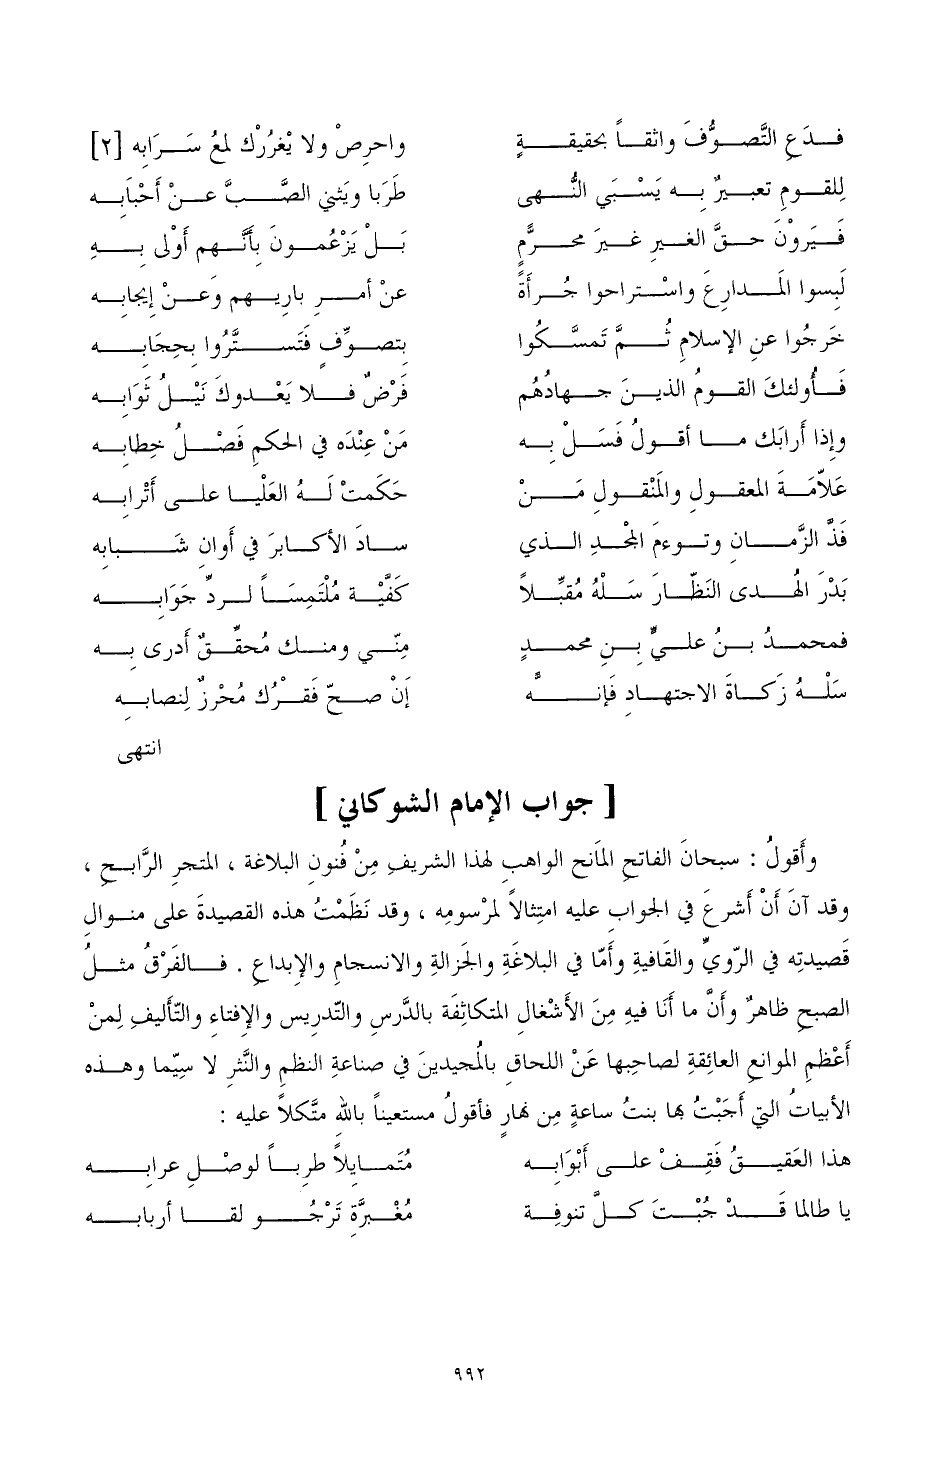 فـدَعِ التَّصوُّفَ واثقـاً بحقيقـةٍ واحرِصْ ولا يْغرُرْك لمعُ سَـرَابِه [٢]
لِلقـومِ تعبيـرٌ بـه يَسْـبَي النُّـهى طَرَبا ويَثنِي الصَّـبَّ عـنْ أحْبَابِـه
فَـيَروْنَ حـقَّ الغـيرِ غـيرَ محـرَّمٍ بَـلْ يَزْعُمـونَ بأنَّـهم أَوْلى بـهِ
لَبِسوا المـدارِعَ واسْـتراحوا جُـرأةً عنْ أمـرِ باريـهم وَعـنْ إيجابِـه
خَرجُوا عنِ الإسلامِ ثُـمَّ تَمسَّـكُوا بتصـوُّفٍ فَتَسـتَّرُوا بِحِجَابِـه
فَـأولئكَ القـومُ الذيـنَ جِـهادُهُم فَرْضٌ فـلا يَعْـدوكَ نَيْـلُ ثَوَابِـه
وإذا أرابَك مـا أقـولُ فَسَـلْ بِـه مَنْ عِنْدَه في الحكمِ فَصْـلُ خِطابِـه
علاَّمَـةَ المعقـولِ والمَنْقـولِ مَـنْ حَكَمتْ لَـهُ العَلْيـا علـى أَتْرابِـه
فَذَّ الزَّمـانِ وتـوءمَ المجْـدِ الـذي سـادَ الأكـابرَ في أَوانِ شَـبابِه
بَدْرَ الهُـدى النَظّـارَ سَـلْهُ مُقبِّـلاً كَفَّيْـهِ مُلْتَمِسَـاً لـردِّ جَوَابِـه
فمحمـدُ بـنُ علـيٍّ بـنِ محمـدٍ مِنّـي ومنـك مُحقِّـقٌ أدرى بِـه
سَلْـهُ زَكـاةَ الاجتهـادِ فَإنـهُ إنْ صـحّ فَقـرُك مُحْرِزٌ لِنصابِـه
انتهى
[ جواب الإمام الشوكاني ]
وأقولُ : سبحانَ الفاتحِ المانحِ الواهبِ لهذا الشريفِ مِنْ فُنونِ البلاغة ، المتجرِ الرَّابـحِ ،
وقد آنَ أنْ أشرعَ في الجوابِ عليه امتثالاً لمرْسومِه ، وقد نَظَمْتُ هذه القصيدةَ على منـوالِ
قصيدتِه في الرّويِّ والقَافيةِ وأمّا في البلاغَةِ والجَزالةِ والانسجامِ والإبداعِ . فـالفَرْقُ مثـلُ
الصبحِ ظاهرٌ وأنَّ ما أنَا فيهِ مِنَ الأشْغالِ المتكاثِفَة بالدَّرسِ والتّدريسِ والإفتاءِ والتّأليفِ لِمنْ
أعْظمِ الموانعِ العائِقةِ لصاحِبِها عَنْ اللحاقِ بالمُجيدينَ في صناعةِ النظمِ والنَّثرِ لا سِيّما وهـذه
الأبياتُ التي أَجَبْتُ بها بنتُ ساعةٍ مِن نهارٍ فأقولُ مستعيناً بالله متَّكلاً عليه :
هذا العَقيـقُ فَقِـفْ علـى أَبْوَابِـه مُتَمـايلاً طربـاً لوصْـلِ عرابِـه
يا طالما قَـدْ جُبْـتَ كـلَّ تنوفـةٍ مُغْـبرَّةٍ تَرْجُـو لقـا أربابِـه
٩٩٢